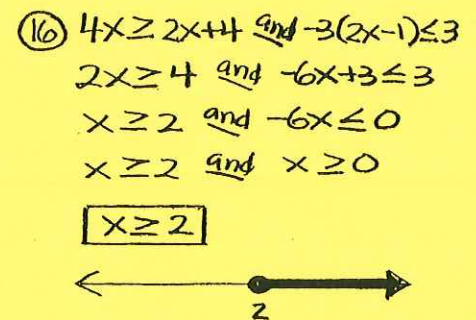 16 4x≥2x+4 and -3(2x-1)≤3
2x≥4 and -6x+3≤3
x≥2 and -6x≤0
x≥2 and x≥0
x≥2
2